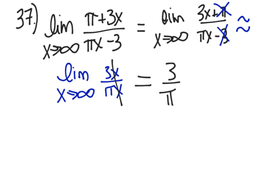 37) lim x→∞ (π+3x)/(πx-3) = lim x→∞ (3x+π)/(πx-3) ≈
lim x→∞ 3x/πx = 3/π